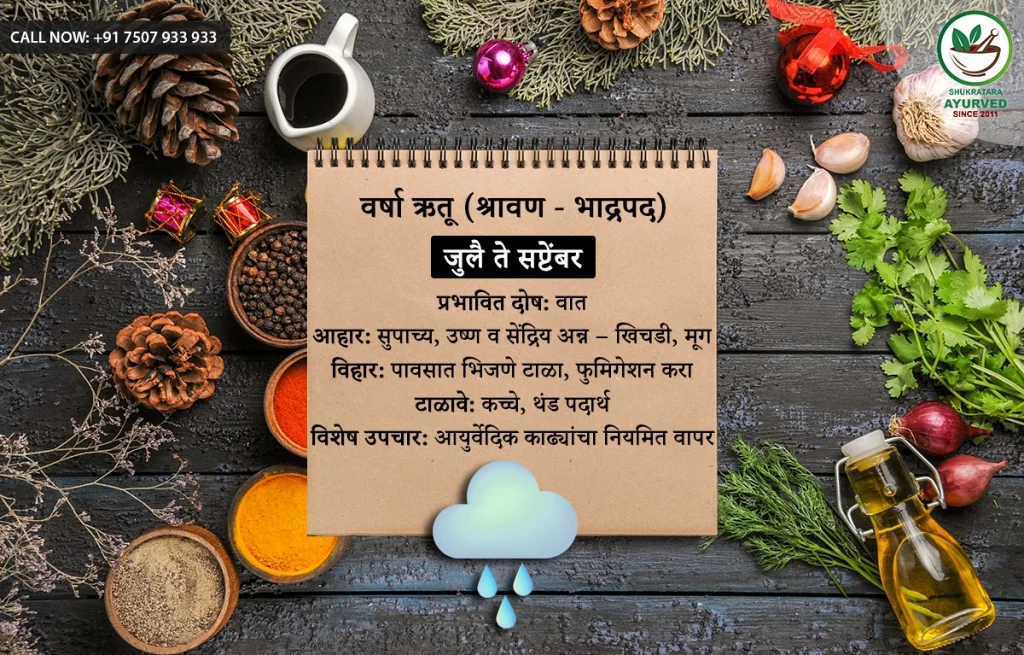 CALL NOW: +91 7507 933 933
SHUKRATARA
AYURVED
SINCE 2011
वर्षा ऋतू (श्रावण - भाद्रपद)
जुलै ते सप्टेंबर
प्रभावित दोष: वात
आहार: सुपाच्य, उष्ण व सेंद्रिय अन्न – खिचडी, मूग
विहार: पावसात भिजणे टाळा, फुमिगेशन करा
टाळावे: कच्चे, थंड पदार्थ
विशेष उपचार: आयुर्वेदिक काढ्यांचा नियमित वापर